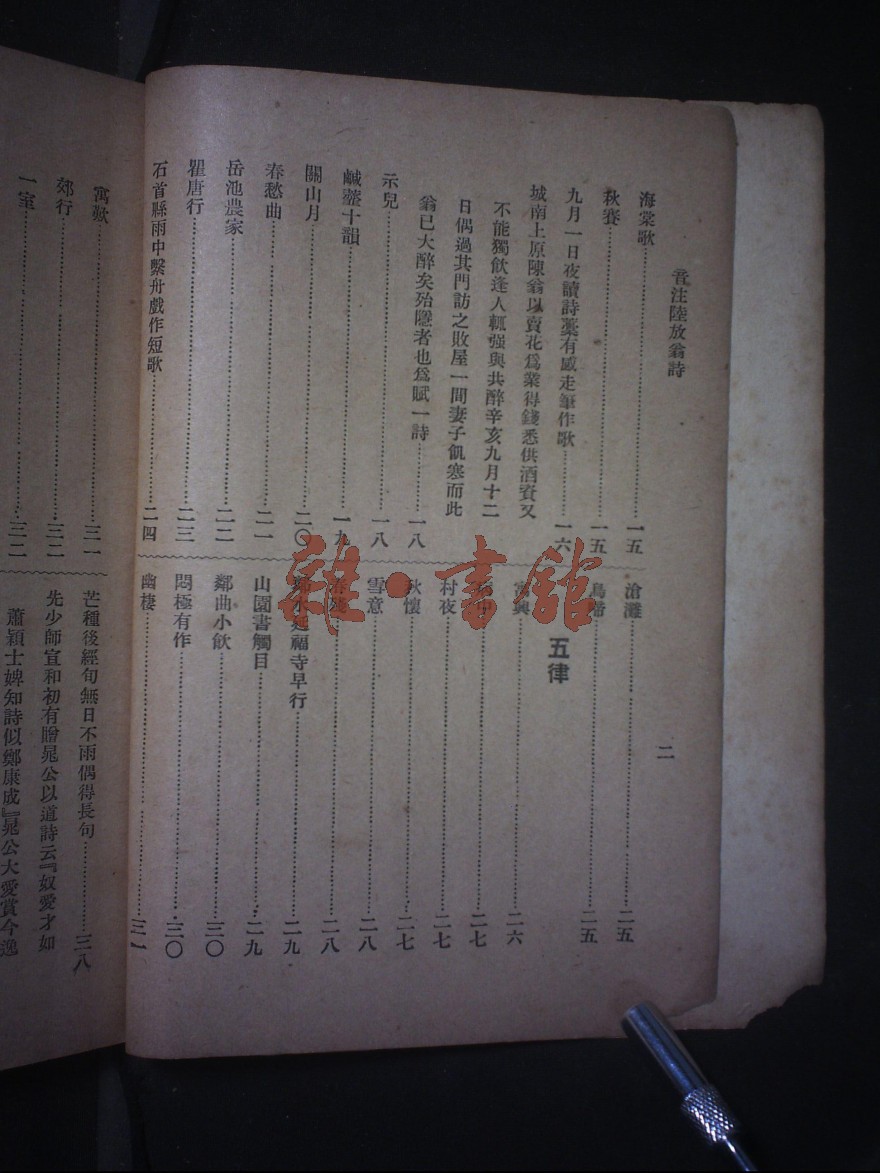 音注陸放翁詩
二
海棠歌 一五
秋賽 一五
九月一日夜讀詩藳有感走筆作歌 一六
城南上原陳翁以賣花爲業得錢悉供酒資又
不能獨飲逢人輒强與共醉辛亥九月十二
日偶過其門訪之敗屋一間妻子飢寒而此
翁已大醉矣殆隱者也爲賦一詩 一八
示兒 一八
鹹虀十韻 一九
關山月 二〇
春愁曲 二一
岳池農家 二二
瞿唐行 二三
石首縣雨中繫舟戲作短歌 二四
滄灘 二五
烏 二五
五律
寓興 二六
中 二七
村夜 二七
秋懷 二七
雪意 二八
春殘 二八
鄰水延福寺早行 二九
山園書觸目 二九
鄰曲小飲 三〇
悶極有作 三〇
幽棲 三一
寓歎 三一
郊行 三二
一室 三二
芒種後經旬無日不雨偶得長句 三八
先少師宣和初有贈晁公以道詩云『奴愛才如
蕭穎士婢知詩似鄭康成』晁公大愛賞今逸
雜·書館